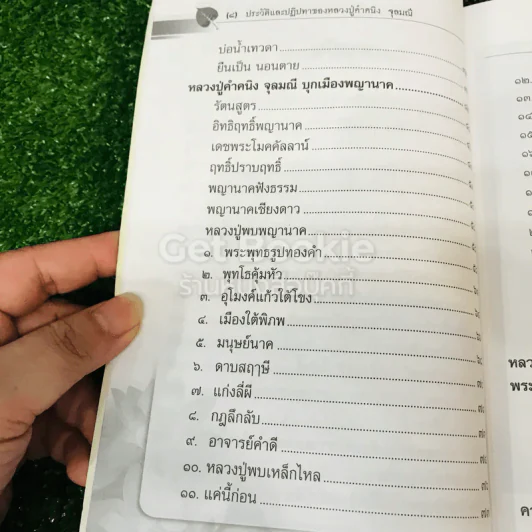 (๘) ประวัติและปฏิปทาของหลวงปู่คำคนิง จุลมณี
บ่อน้ำเทวดา
ยืนเป็น นอนตาย
หลวงปู่คำคนิง จุลมณี บุกเมืองพญานาค
รัตนสูตร
อิทธิฤทธิ์พญานาค
เดชพระโมคคัลลาน์
ฤทธิ์ปราบฤทธิ์
พญานาคฟังธรรม
พญานาคเชียงดาว
หลวงปู่พบพญานาค
๑. พระพุทธรูปทองคำ
๒. พุทโธคุ้มหัว
๓. อุโมงค์แก้วใต้โขง
๔. เมืองใต้พิภพ
๕. มนุษย์นาค
๖. ดาบสฤาษี
๗. แก่งลี่ผี
๘. กฎลึกลับ
๙. อาจารย์คำดี
๑๐. หลวงปู่พบเหล็กไหล
๑๑. แค่นี้ก่อน
Get Bookie
๑๒.
๑๓.
๑๔
๑๕
หลว
พระ